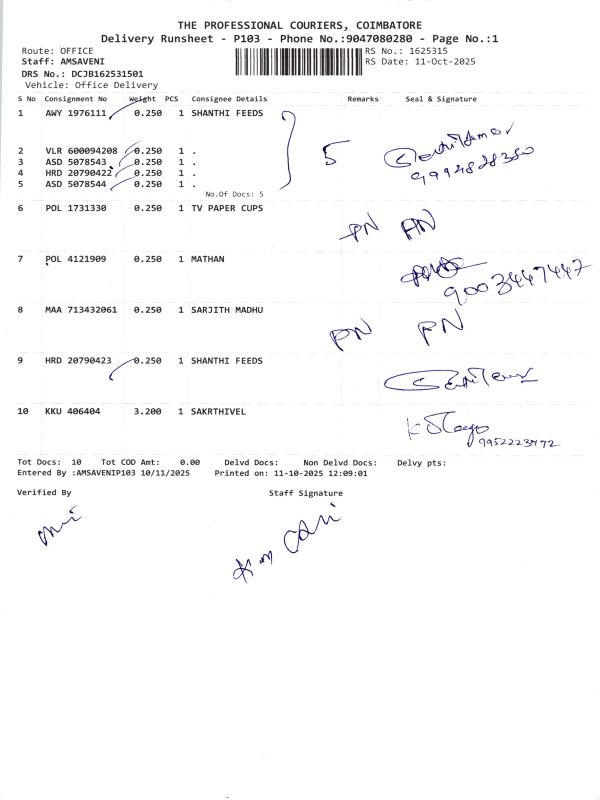 THE PROFESSIONAL COURIERS, COIMBATORE
Delivery Runsheet - P103 - Phone No.:9047080280 - Page No.:1
Route: OFFICE RS No.: 1625315
Staff: AMSAVENI RS Date: 11-Oct-2025
DRS No.: DCJB162531501
Vehicle: Office Delivery
S No Consignment No Weight PCS Consignee Details Remarks Seal & Signature
1 AWY 1976111 0.250 1 SHANTHI FEEDS
2 VLR 600094208 0.250 1 .
3 ASD 5078543 0.250 1 . 5
4 HRD 20790422 0.250 1 .
5 ASD 5078544 0.250 1 .
No.Of Docs: 5
6 POL 1731330 0.250 1 TV PAPER CUPS
PN AN
7 POL 4121909 0.250 1 MATHAN
9003447447
8 MAA 713432061 0.250 1 SARJITH MADHU
PN PN
9 HRD 20790423 0.250 1 SHANTHI FEEDS
10 KKU 406404 3.200 1 SAKRTHIVEL
9952223772
Tot Docs: 10 Tot COD Amt: 0.00 Delvd Docs: Non Delvd Docs: Delvy pts:
Entered By :AMSAVENIP103 10/11/2025 Printed on: 11-10-2025 12:09:01
Verified By Staff Signature